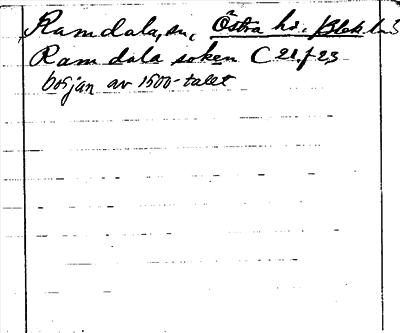 Ramdala, sn, Östra hd. Blek. l.
Ramdala soken C 21. f 23
början av 1500-talet